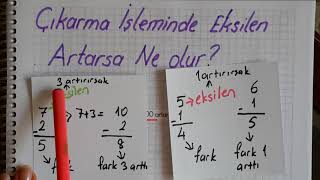 Çıkarma İşleminde Eksilen
Artarsa Ne olur?
3 artırırsak
7 → 7+3 = 10
- 2
- 2
5
8
fark
fark 3 arttı
1 artırırsak
5 → eksilen
6
- 1
- 1
4
5
fark
fark 1
arttı